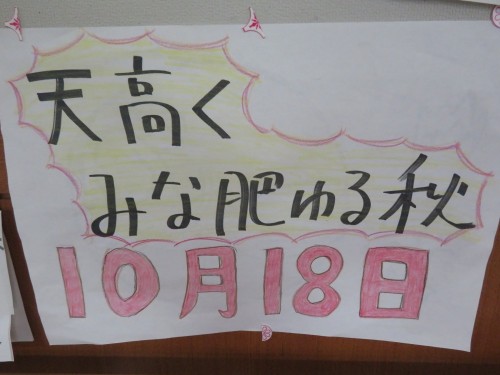 天高く
みな肥ゆる秋
10月18日